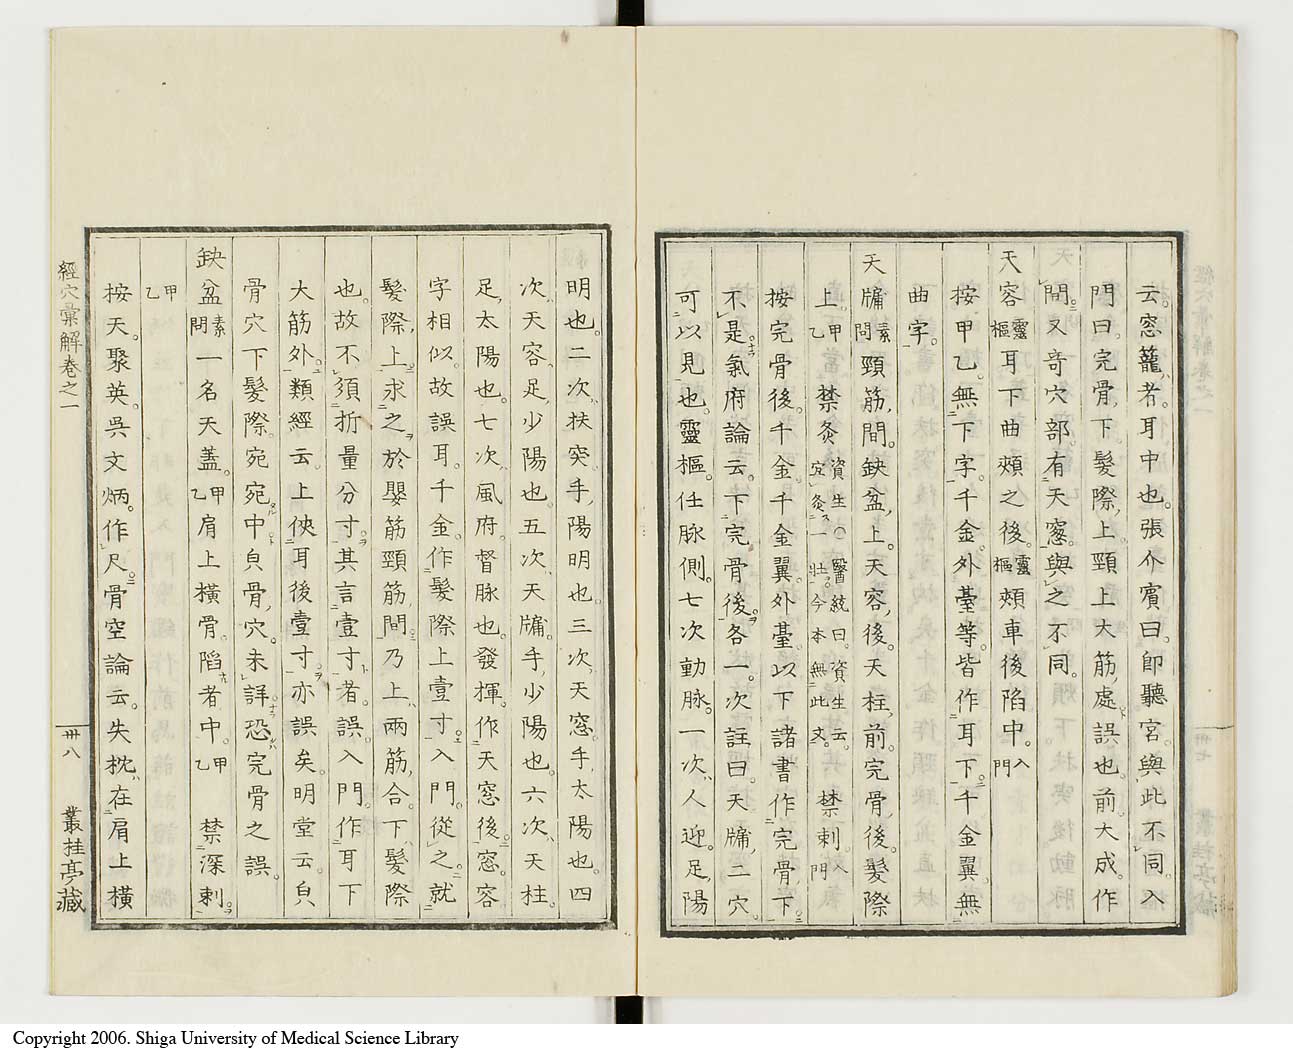 云。窓籠者。耳中也。張介賓曰。即聽宮。與此不同。入
門曰。完骨下髮際上頸上大筋處。誤也。前大成作
間。又奇穴部有天窓。與之不同。
天容靈樞耳下曲頰之後。靈樞頰車後陷中。入門
按甲乙無下字。千金外臺等。皆作耳下。千金翼無
曲字。
天牖素問頸筋間。缺盆上。天容後。天柱前。完骨後。髮際
上。甲乙 禁灸資生〇醫統曰。資生云。宜灸一壯。今本無此文。 禁刺入門
按完骨後。千金千金翼外臺以下諸書作完骨下
不是。氣府論云。下完骨後。各一。次註曰。天牖二穴。
可以見也。靈樞。任脉側。七次動脉。一次人迎。足陽
明也。二次扶突手陽明也。三次天窓。手太陽也。四
次天容。足少陽也。五次天牖。手少陽也。六次天柱
足太陽也。七次風府。督脉也。發揮作天窓後。窓容
字相似。故誤耳。千金作髮際上壹寸。入門從之。就
髮際上求之於嬰筋頸筋間。乃上兩筋合下。髮際
也。故不須折量分寸。其言壹寸者。誤。入門作耳下
大筋外。類經云。上俠耳後壹寸。亦誤矣。明堂云。負
骨穴下髮際。宛宛中負骨穴。未詳。恐完骨之誤。
缺盆素問一名天蓋。甲乙肩上橫骨陷者中。甲乙 禁深刺。
甲乙
按天。聚英。吳文炳。作尺。骨空論云。失枕在肩上橫
經穴彙解卷之一
卅八
叢桂亭藏